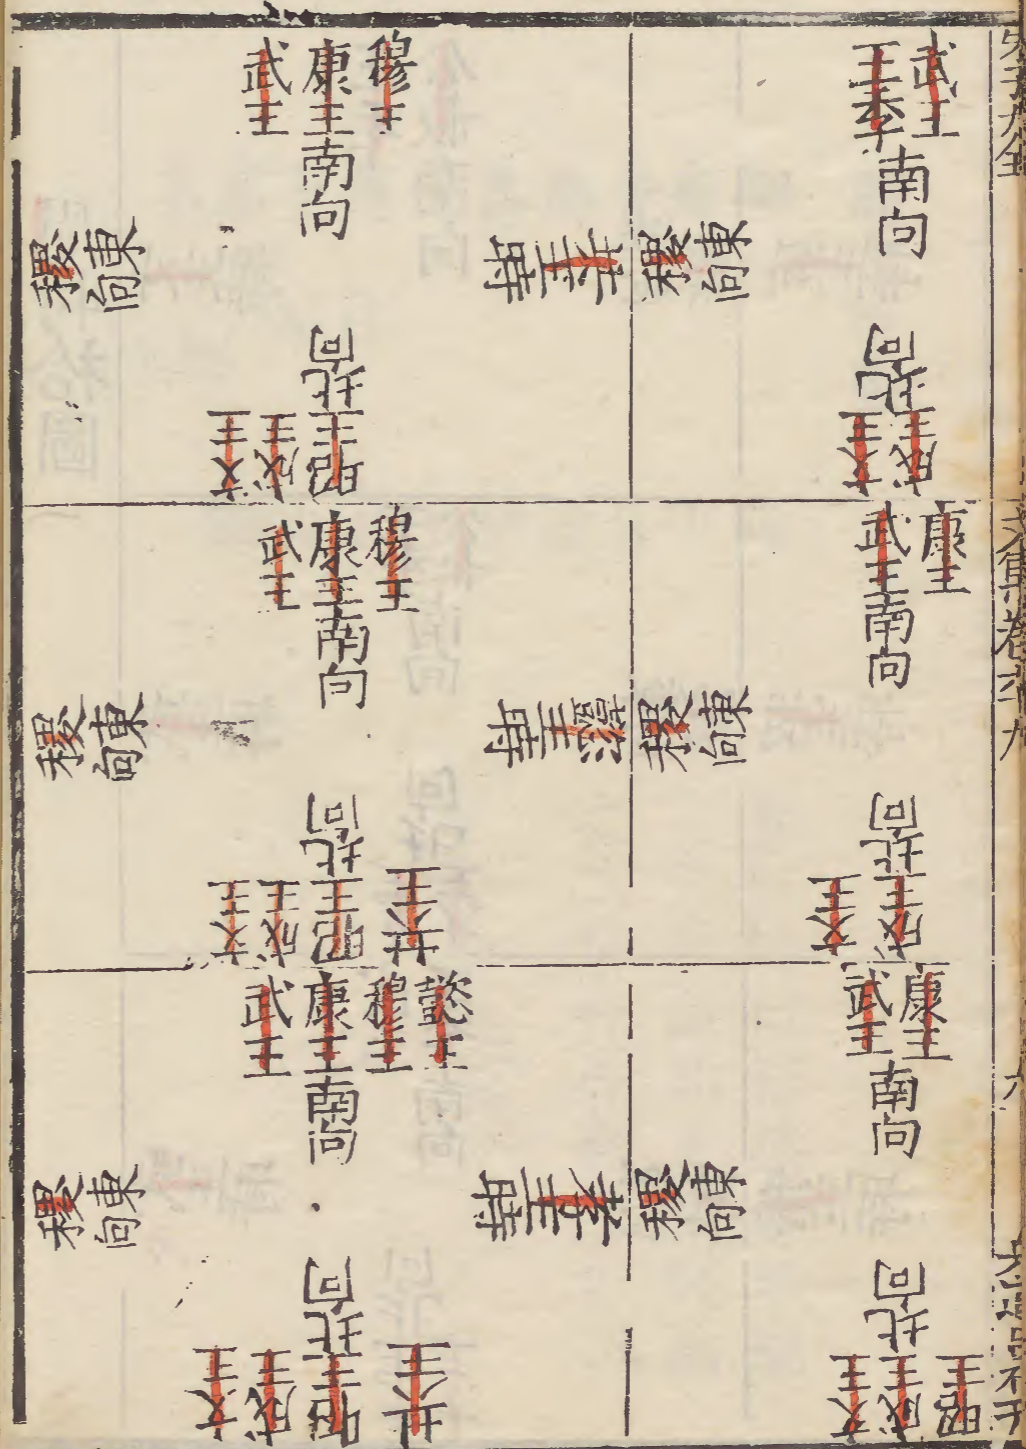 朱子大全
文集卷六十九
六
武王
王季
南向
稷
東向
北向
成王
文王
康王
武王
南向
稷
東向
北向
成王
文王
康王
武王
南向
稷
東向
北向
昭王
成王
文王
共王時
穆王
康王
武王
南向
稷
東向
北向
昭王
成王
文王
懿王時
穆王
康王
武王
南向
稷
東向
北向
共王
昭王
成王
文王
孝王時
懿王
穆王
康王
武王
南向
稷
東向
北向
共王
昭王
成王
文王